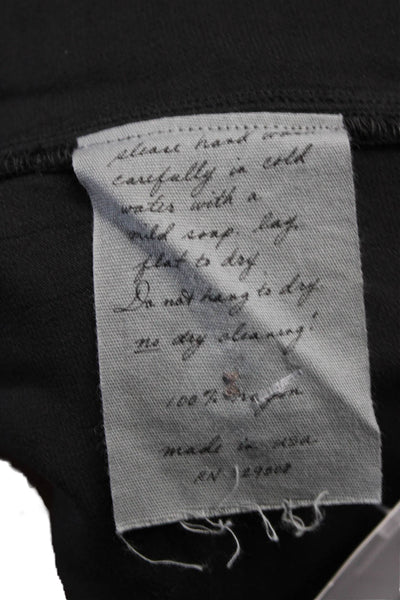 please hand wash
carefully in cold
water with a
mild soap, lay
flat to dry
Do not hang to dry
no dry cleaning!
100% rayon
made in usa
RN 89008